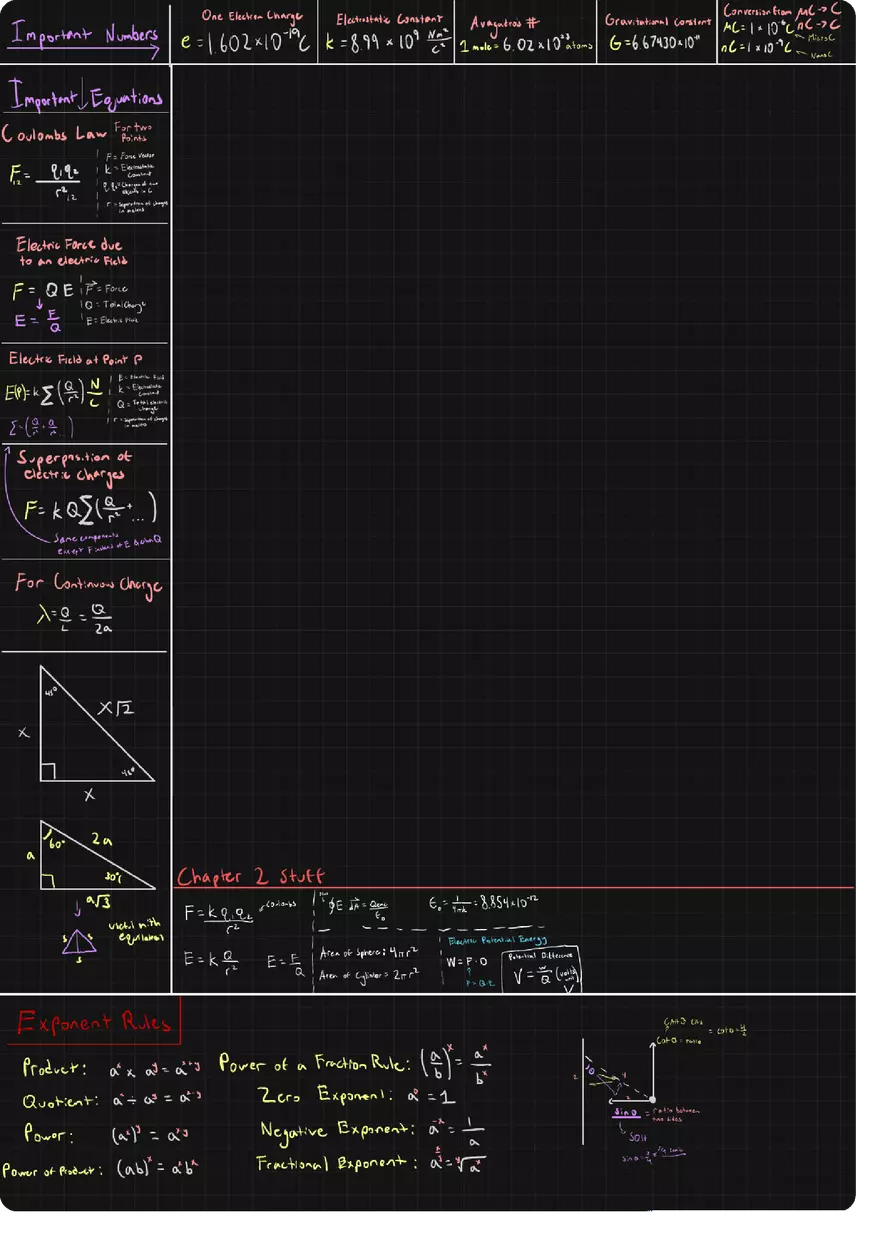 Important Numbers
One Electron Charge
e = 1.602 x 10^-19 C
Electrostatic Constant
k = 8.99 x 10^9 Nm²/C²
Avagatros #
1 mole = 6.02 x 10^23 atoms
Gravitational Constant
G = 6.67430 x 10^-11
Conversion from μC → C
nC → C
μC = 1 x 10^-6 C
MicroC
nC = 1 x 10^-9 C
NanoC
Important Equations
Coulombs Law For two Points
F₁₂ = q₁q₂ / r²₁₂
F = Force Vector
k = Electrostatic Constant
q₁q₂ = Charges of two objects in C
r = Separation of charges in meters
Electric Force due
to an electric Field
F = Q E
E = F/Q
F = Force
Q = Total Charge
E = Electric Field
Electric Field at Point P
E(P) = k Σ (Q/r²) N/C
Σ = (Q/r² + Q/r² ...)
E = Electric Field
k = Electrostatic Constant
Q = Total electric charge
r = Separation of charges in meters
Superposition of
electric charges
F = k Q Σ (Q/r² + ...)
Same components
except F instead of E
For Continuous Charge
λ = Q/L = Q/2a
45°
x√2
x
45°
x
60°
2a
a
30°
a√3
useful with
equilateral
s s
s
Chapter 2 Stuff
F = k q₁q₂/r²
Coulombs
E = k Q/r²
E = F/Q
∮E dA = Qenc/ε₀
ε₀ = 1/4πk = 8.854 x 10^-12
Area of Sphere: 4πr²
Area of Cylinder = 2πr²
Electric Potential Energy
W = F · D
F = Q·E
Potential Difference
V = W/Q (volts unit)
V
Exponent Rules
Product: a^x x a^y = a^x+y
Quotient: a^x ÷ a^y = a^x-y
Power: (a^x)^y = a^xy
Power of Product: (ab)^x = a^x b^x
Power of a Fraction Rule: (a/b)^x = a^x/b^x
Zero Exponent: a^0 = 1
Negative Exponent: a^-x = 1/a
Fractional Exponent: a^x/y = y√a^x
cosθ = ratio
sinθ = ratio between two sides
SOH